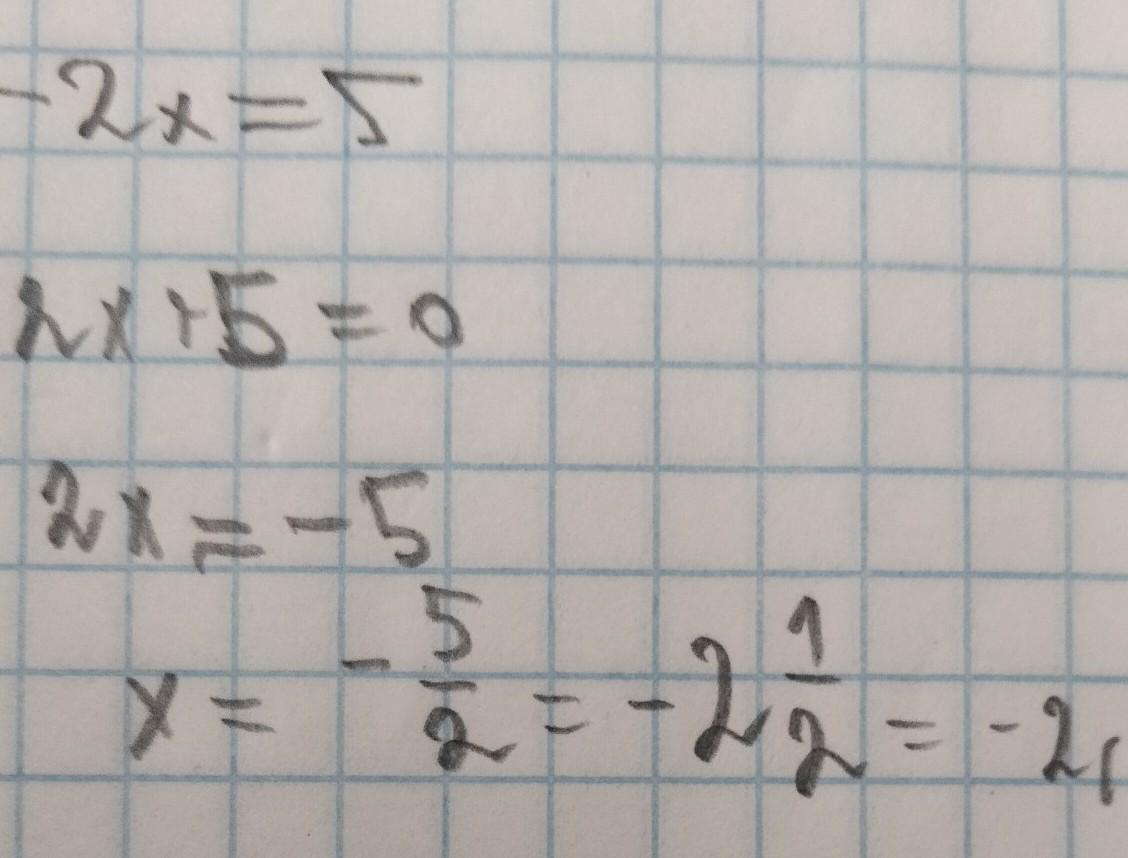 -2x=5
2x+5=0
2x=-5
x= -5/2 = -2 1/2 = -2,